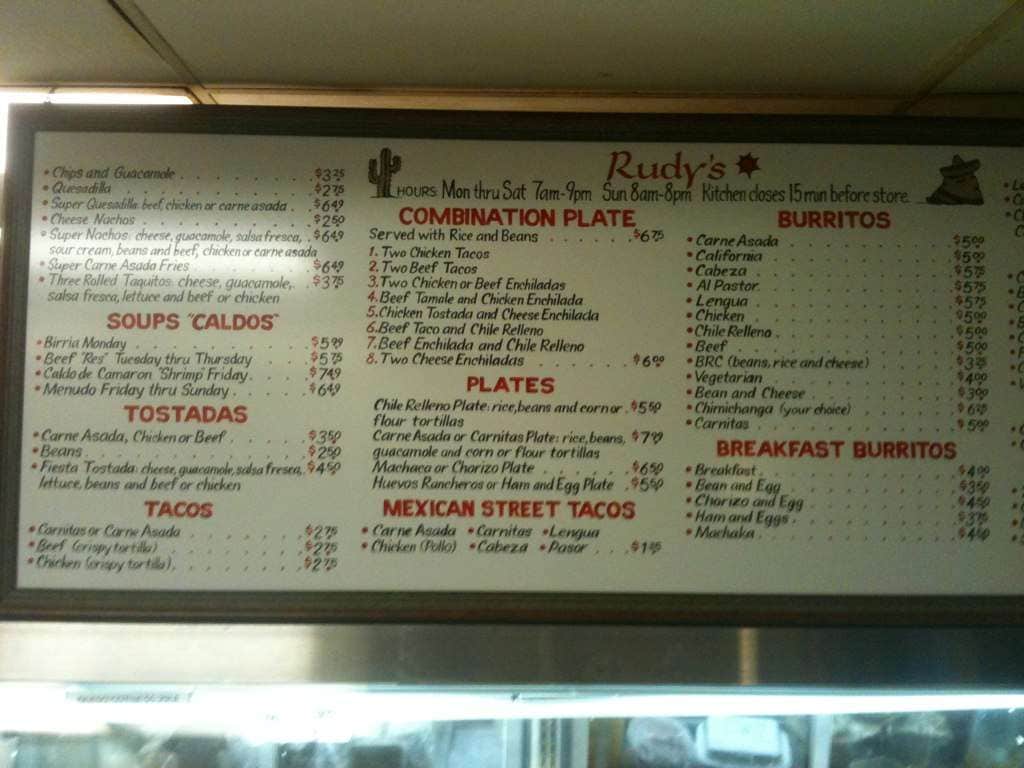 • Chips and Guacamole . . . $3.25
• Quesadilla . . . $2.75
• Super Quesadilla: beef, chicken or carne asada . $6.49
• Cheese Nachos . . . $2.50
• Super Nachos: cheese, guacamole, salsa fresca, . $6.49
sour cream, beans and beef, chicken or carne asada
• Super Carne Asada Fries . . . $6.49
• Three Rolled Taquitos: cheese, guacamole, . $3.75
salsa fresca, lettuce and beef or chicken
SOUPS "CALDOS"
• Birria Monday . . . $5.99
• Beef "Res" Tuesday thru Thursday . . . $5.75
• Caldo de Camaron "Shrimp" Friday . . . $7.49
• Menudo Friday thru Sunday . . . $6.49
TOSTADAS
• Carne Asada, Chicken or Beef . . . $3.50
• Beans . . . $2.50
• Fiesta Tostada: cheese, guacamole, salsa fresca, . $4.50
lettuce, beans and beef or chicken
TACOS
• Carnitas or Carne Asada . . . $2.75
• Beef (crispy tortilla) . . . $2.75
• Chicken (crispy tortilla) . . . $2.75
Rudy's
HOURS: Mon thru Sat 7am-9pm Sun 8am-8pm Kitchen closes 15 min before store
COMBINATION PLATE
Served with Rice and Beans . . . $6.75
1. Two Chicken Tacos
2. Two Beef Tacos
3. Two Chicken or Beef Enchiladas
4. Beef Tamale and Chicken Enchilada
5. Chicken Tostada and Cheese Enchilada
6. Beef Taco and Chile Relleno
7. Beef Enchilada and Chile Relleno
8. Two Cheese Enchiladas . . . $6.00
PLATES
Chile Relleno Plate: rice, beans and corn or . $5.50
flour tortillas
Carne Asada or Carnitas Plate: rice, beans, $7.99
guacamole and corn or flour tortillas
Machaca or Chorizo Plate . . . $6.50
Huevos Rancheros or Ham and Egg Plate . $5.50
MEXICAN STREET TACOS
• Carne Asada • Carnitas • Lengua
• Chicken (Pollo) • Cabeza • Pasor . . . $1.25
BURRITOS
• Carne Asada . . . $5.00
• California . . . $5.00
• Cabeza . . . $5.75
• Al Pastor . . . $5.75
• Lengua . . . $5.75
• Chicken . . . $5.00
• Chile Relleno . . . $5.00
• Beef . . . $5.00
• BRC (beans, rice and cheese) . . . $3.75
• Vegetarian . . . $4.00
• Bean and Cheese . . . $3.00
• Chimichanga (your choice) . . . $6.75
• Carnitas . . . $5.00
BREAKFAST BURRITOS
• Breakfast . . . $4.00
• Bean and Egg . . . $3.50
• Chorizo and Egg . . . $4.50
• Ham and Eggs . . . $3.75
• Machaka . . . $4.50